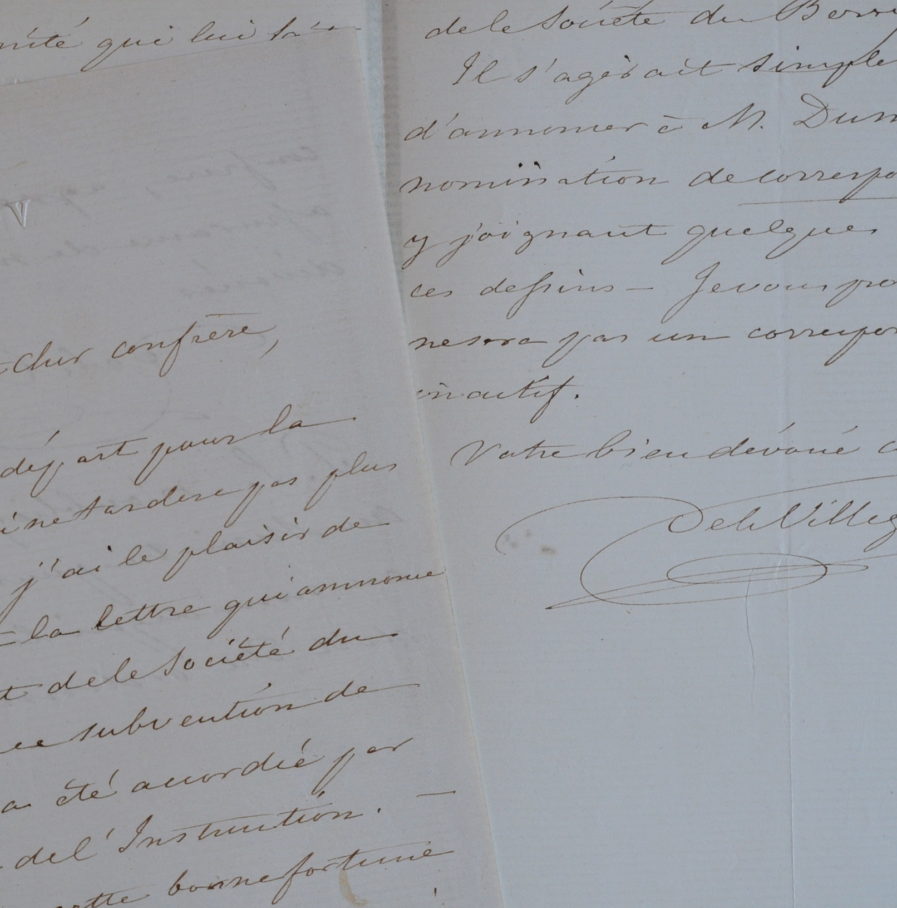 nité qui lui
Cher confrère,
départ pour la
ne tardera pas plus
j'ai le plaisir de
la lettre qui annonce
de la Société du
subvention de
a été accordée par
de l'Instruction. —
cette bonne fortune
de la Société du Berry
Il s'agirait simple
d'annoncer à M. Dum
nomination de correspo
y joignant quelques
ces dessins — Je vous pro
ne sera pas un correspon
inactif.
Votre bien dévoué c
De la Villeg